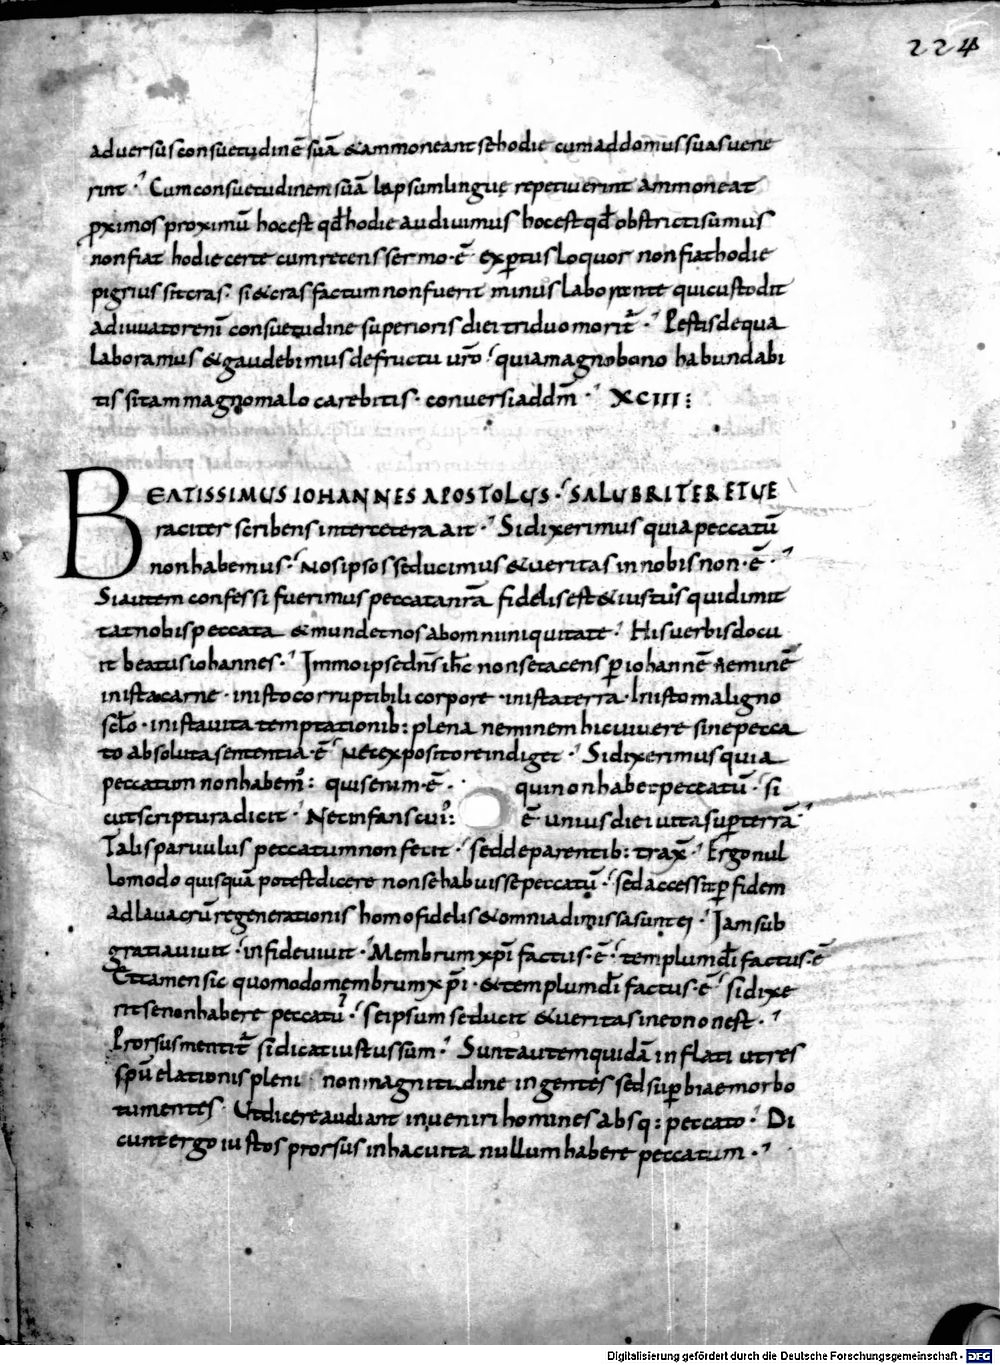 224
aduersus consuetudinē suā & ammoneant se hodie cum ad domus suas uene
rint ·' Cum consuetudinem suā lapsum linguę repetiuerint ammoneat
ꝓximos proximū hoc est qđ hodie audiuimus hoc est qđ obstricti sumus
non fiat hodie certe cum recens sermo · ē exꝑtus loquor non fiat hodie
pigrius sit cras · si & cras factum non fuerit minus laborante qui custodit
adiuuatorem consuetudine superioris diei triduo moritr̄ ·' Pestis de qua
laboramus & gaudebimus de fructu ur̄o ·' quia magno bono habundabi
tis si tam magno malo carebitis · conuersi ad dm̄ ·' XCIII :
BEATISSIMUS IOHANNES APOSTOLUS ·' SALUBRITER ET UE
raciter scribens inter cetera ait ·' Si dixerimus quia peccatū
non habemus ·' Nos ipsos seducimus & ueritas in nobis non · ē ·'
Si autem confessi fuerimus peccata nr̄a fidelis est & iustus qui dimit
tat nobis peccata & mundet nos ab omni iniquitate ·' His uerbis docu
it beatus iohannes ·' Immo ipse dn̄s ih̄c non se tacens ꝑ iohannē Neminē
in ista carne · in isto corruptibili corpore · in ista terra · In isto maligno
sclo · in ista uita temptationib: plena neminem hic uiuere sine pecca
to absoluta sententia · ē ·' Nec expositore indiget ·' Si dixerimus quia
peccatum non habem': quis enim · ē · qui non habet peccatū ·' si
cut scriptura dicit ·' Nec infans cui': ē unius diei uita suꝑ terrā ·'
Talis paruulus peccatum non fecit ·' sed de parentib: trax̄ ·' Ergo nul
lo modo quisquā potest dicere non se habuisse peccatū ·' sed accessit ꝑ fidem
ad lauacrū regenerationis homo fidelis & omnia dimissa sunt ei ·' Iam sub
gratia uiuit ·' in fide uiuit ·' Membrum xp̄i factus · ē ·' templum dī factus · ē
Et tamen sic quomodo membrum xp̄i · & templum dī factus · ē ·' si dixe
rit se non habere peccatū ·' se ipsum seducit & ueritas in eo non est ·'
Prorsus mentitr̄ si dicat iustus sum ·' Sunt autem quidā inflati utres
spū elationis pleni non magnitudine ingentes sed suꝑbiae morbo
tumentes · Ut dicere audiant inueniri homines absq: peccato ·' Di
cunt ergo iustos prorsus in hac uita nullum habere peccatum ·'
Digitalisierung gefördert durch die Deutsche Forschungsgemeinschaft - DFG